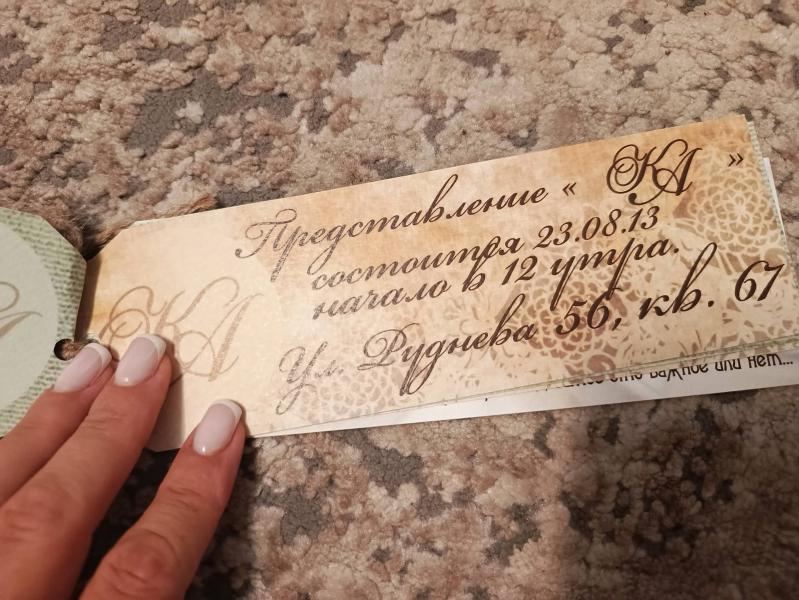 Представление « КА »
состоится 23.08.13
начало в 12 утра.
Ул. Руднева 56, кв. 67
КА
важное или нет...